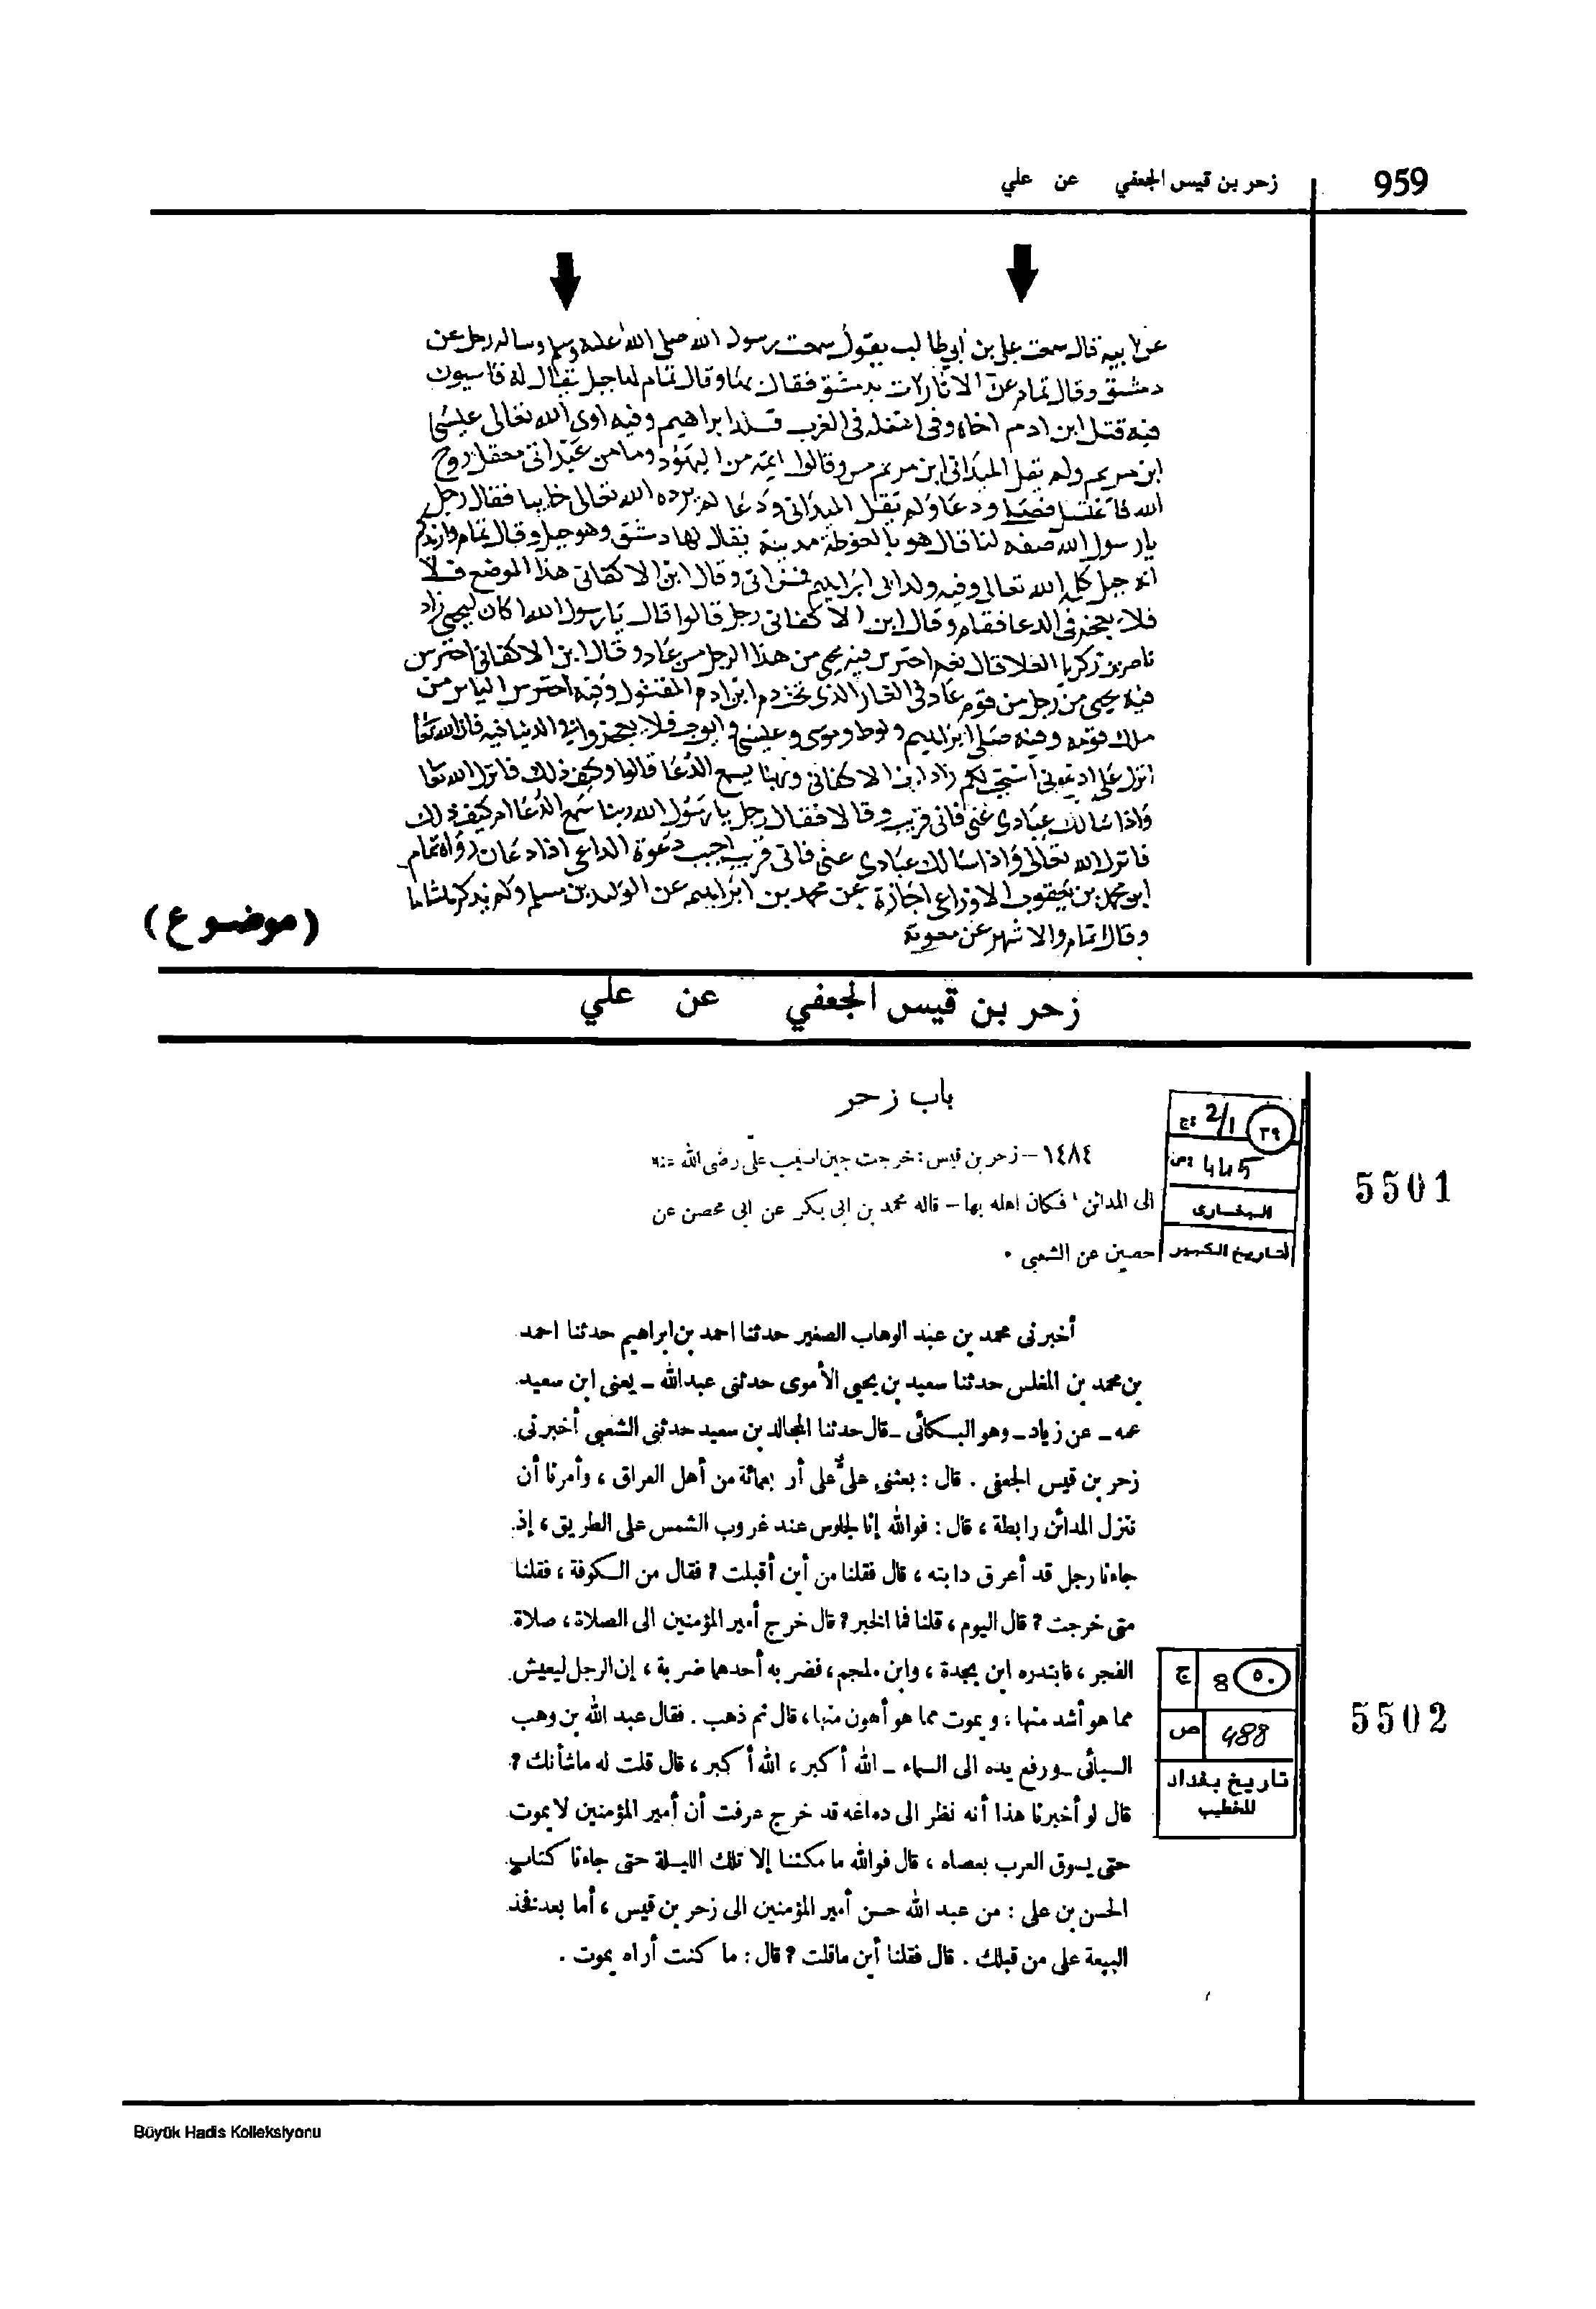 959
زحر بن قيس الجعفي عن علي
عن ابيه قال سمعت علي بن ابي طالب يقول سمعت رسول الله صلى الله عليه وسلم وساله رجل عن
دمشق وقال تمام عن الاثارات بدمشق فقال بها وقال تمام لها جبل يقال له قاسيون
فيه قتل ابن ادم اخاه وفي اسفله في الغرب ولد ابراهيم وفيه اوى الله تعالى عيسى
ابن مريم ولم يقل الميداني ابن مريم من وقالوا امه من اليهود وما من عبد اتى معقل روح
الله فاغتسل وصلى ودعا ولم يقل الميداني ودعا لم يرده الله تعالى خايبا فقال رجل
يا رسول الله صفه لنا قال هو بالغوطة مدينة يقال لها دمشق وهو جبل وقال تمام وازيدكم
انه جبل كلمه الله تعالى وفيه ولد ابي ابراهيم فمن اتى وقال ابن الاكفاني هذا الموضع فلا
فلا يعجز في الدعا فقام وقال ابن الاكفاني رجل قالوا قال يا رسول الله اكان ليحيى زاد
قال نعم احترس فيه يحيى من هذا الرجل من عاد وقال ابن الاكفاني احترس
فيه يحيى من رجل من قوم عاد في الغار الذي تحت دم ابن ادم المقتول وفيه احترس الياس من
ملك قومه وفيه صلى ابراهيم ولوط وموسى وعيسى وايوب فلا تعجزوا في الدعا فيه فان الله تعا
انزل علي ادعوني استجب لكم زاد ابن الاكفاني وربنا يسمع الدعا قالوا وكيف ذلك فانزل الله تعا
واذا سالك عبادي عني فاني قريب وقالا فقال رجل يا رسول الله ربنا سمع الدعا ام كيف ذلك
فانزل الله تعالى واذا سالك عبادي عني فاني قريب اجيب دعوة الداعي اذا دعان رواه تمام
ابو محمد بن يعقوب الاوزاعي اجازة عن محمد بن ابراهيم عن الوليد بن مسلم ولم يذكر هشاما
وقال تمام والاشهر عن معوية
(موضوع)
زحر بن قيس الجعفي عن علي
باب زحر
5501
٣٩ 2/1 ج:
ص: 445
البخاري
التاريخ الكبير
١٤٨٤ – زحر بن قيس: خرجت حين اصيب علي رضى الله عنه
الى المدائن، فكان اهله بها – قاله محمد بن ابى بكر عن ابى محصن عن
حصين عن الشعبى .
أخبرنى محمد بن عبد الوهاب الصغير حدثنا احمد بن ابراهيم حدثنا احمد
بن محمد بن المغلس حدثنا سعيد بن يحيى الأموى حدثنى عبد الله – يعنى ابن سعيد
عمه – عن زياد – وهو البكائى – قال حدثنا المجالد بن سعيد حدثنى الشعبى أخبرنى
زحر بن قيس الجعفى . قال : بعثنى علىٌّ على أربعمائة من أهل العراق ، وأمرنا أن
ننزل المدائن رابطة ، قال : فوالله إنا لجلوس عند غروب الشمس على الطريق ، إذ
جاءنا رجل قد أعرق دابته ، قال فقلنا من أين أقبلت ؟ فقال من الكوفة ، فقلنا
متى خرجت ؟ قال اليوم ، قلنا فما الخبر ؟ قال خرج أمير المؤمنين الى الصلاة ، صلاة
الفجر ، فابتدره ابن بجدة ، وابن ملجم ، فضربه أحدهما ضربة ، إن الرجل ليعيش
مما هو أشد منها ، ويموت مما هو أهون منها ، قال ثم ذهب . فقال عبد الله بن وهب
السبائى – ورفع يده الى السماء – الله أكبر ، الله أكبر ، قال قلت له ماشأنك ؟
قال لو أخبرنا هذا أنه نظر الى دماغه قد خرج عرفت أن أمير المؤمنين لا يموت
حتى يسوق العرب بعصاه ، قال فوالله ما مكثنا إلا تلك الليلة حتى جاءنا كتاب
الحسن بن على : من عبد الله حسن أمير المؤمنين الى زحر بن قيس ، أما بعد فخذ
البيعة على من قبلك . قال فقلنا أين ماقلت ؟ قال : ما كنت أراه يموت .
5502
٥٠ 8 ج
488 ص
تاريخ بغداد
للخطيب
Büyük Hadis Kolleksiyonu